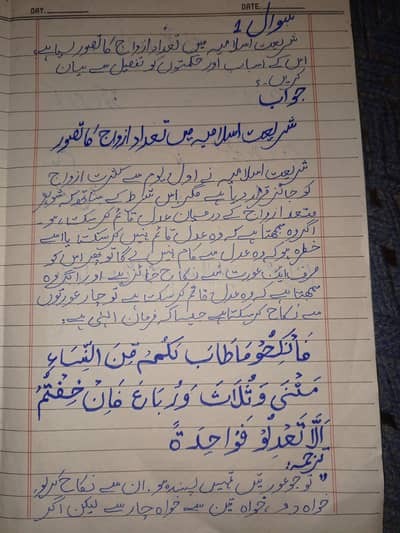 DAY. DATE.
سوال 1
شریعت اسلامیہ میں تعداد ازواج کا تصور کیا ہے
اس کے اسباب اور حکمتوں کو تفصیل سے بیان
کریں۔؟
جواب
شریعت اسلامیہ میں تعداد ازواج کا تصور
شریعت اسلامیہ نے اول یوم سے کثرت ازواج
کو جائز قرار دیا ہے مگر اس شرط کے ساتھ کہ شوہر
متعدد ازواج کے درمیان عدل قائم کر سکتا ہو۔
اگر وہ سمجھتا ہے کہ وہ عدل قائم نہیں کر سکتا یا اسے
خطرہ ہو کہ وہ عدل سے کام نہیں لے گا تو پھر اس کو
صرف ایک عورت سے نکاح جائز ہے اور اگر وہ
سمجھتا ہے کہ وہ عدل قائم کر سکتا ہے تو چار عورتوں
سے نکاح کر سکتا ہے جیسا کہ فرمان الہی ہے:
فَانْکِحُو مَا طَابَ لَکُمْ مِّنَ النِّسَاءِ
مَثْنٰی وَ ثُلَاثَ وَ رُبَاعَ فَاِنْ خِفْتُمْ
اَلَّا تَعْدِلُو فَوَاحِدَةً
ترجمہ:
"تو جو عورتیں تمہیں پسند ہو۔ ان سے نکاح کر لو
خواہ دو، خواہ تین سے خواہ چار سے لیکن اگر